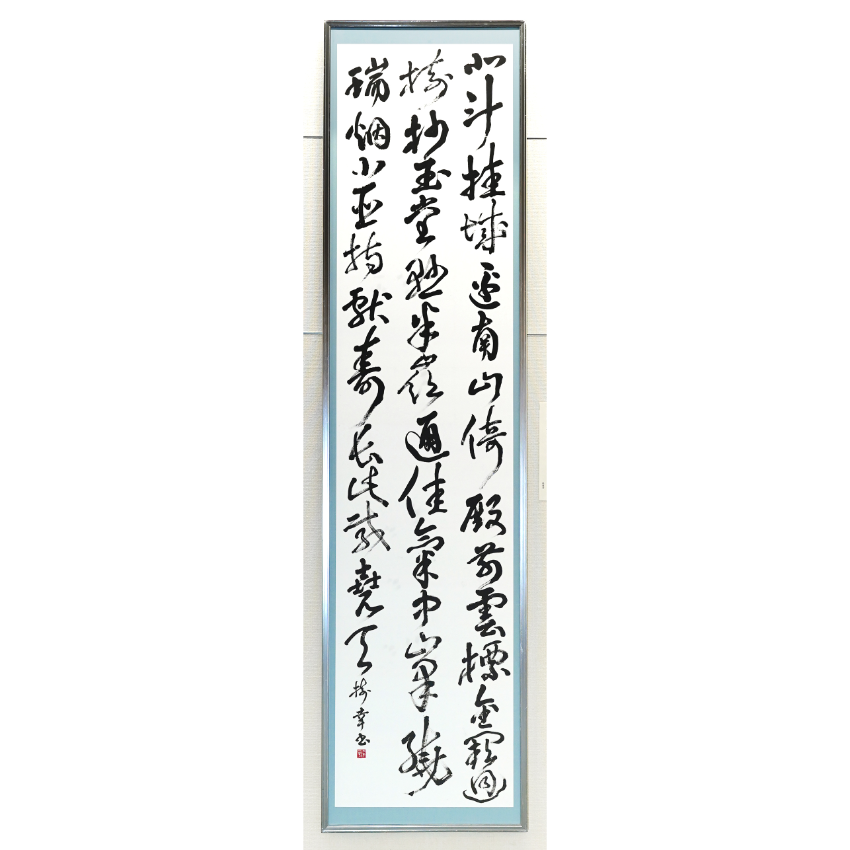 北斗挂城邊南山倚殿前雲標金闕迥
樹杪玉堂懸半嶺通佳氣中峯繞
瑞烟小臣持獻壽長此戴堯天
樹幸書